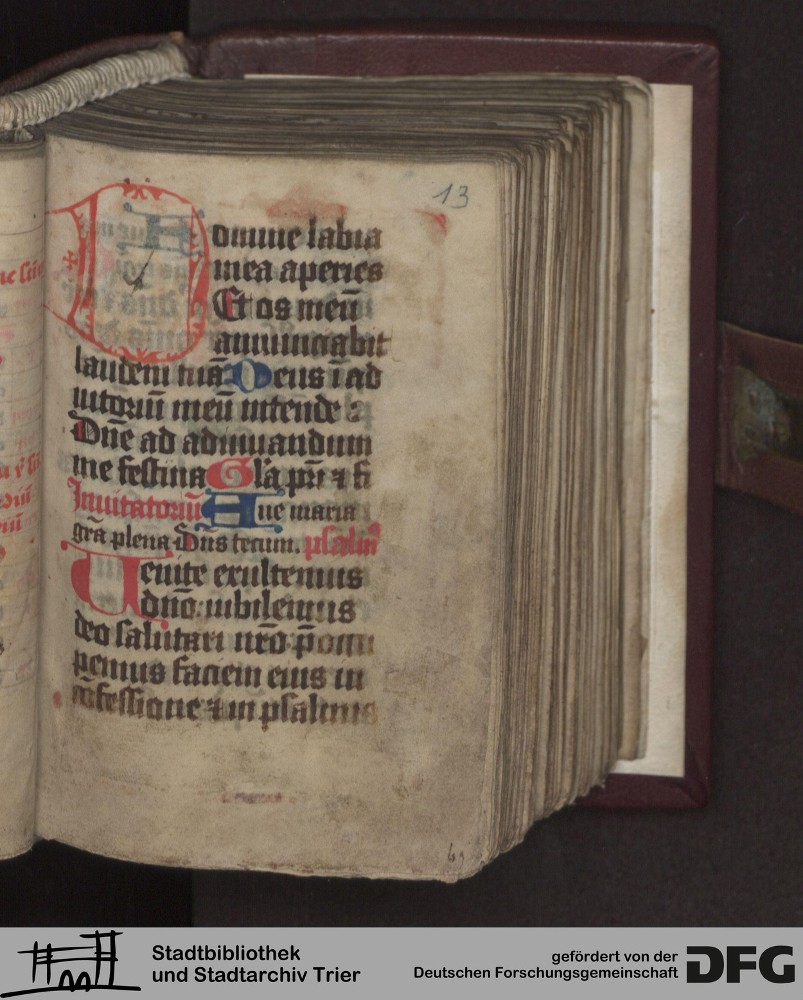 13
domine labia
mea aperies
Et os meū
annunciabit
laudem tuā Deus ī ad
iutoriū meū intende
Dn̄e ad adiuuandum
me festina Gl̄a pr̄i ⁊ fi
Inuitatoriū Aue maria
gr̄a plena Dn̄s tecum. psalmꝰ
Uenite exultemus
dn̄o iubilemus
deo salutari nr̄o p̄occu
pemus faciem eius in
ꝯfessione ⁊ in psalmis
Stadtbibliothek
und Stadtarchiv Trier
gefördert von der
Deutschen Forschungsgemeinschaft
DFG